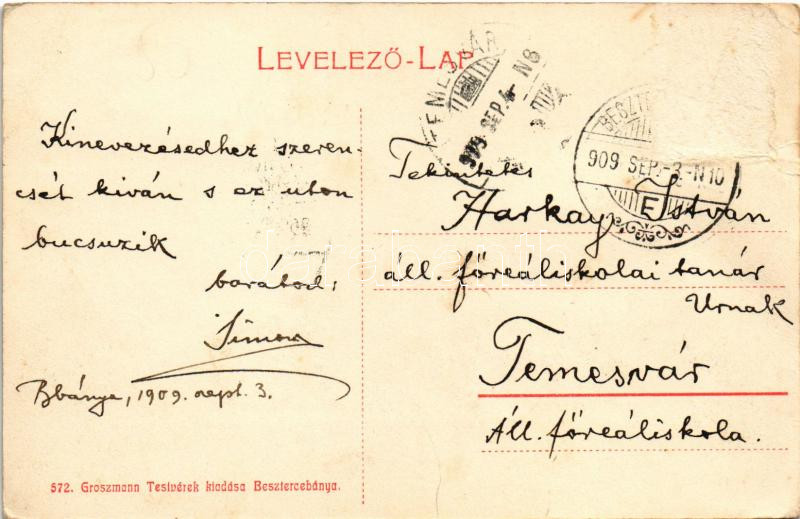 LEVELEZŐ-LAP
TEMESVÁR
909 SEP. 4 - N8
BESZTE
909 SEP.-3-N10
E
Kinevezésedhez szeren-
csét kiván s ez uton
bucsuzik
barátod:
Simon
Bbánya, 1909. sept. 3.
Tekintetes
Harkay István
áll. főreáliskolai tanár
Urnak
Temesvár
Áll. főreáliskola.
572. Groszmann Testvérek kiadása Besztercebánya.